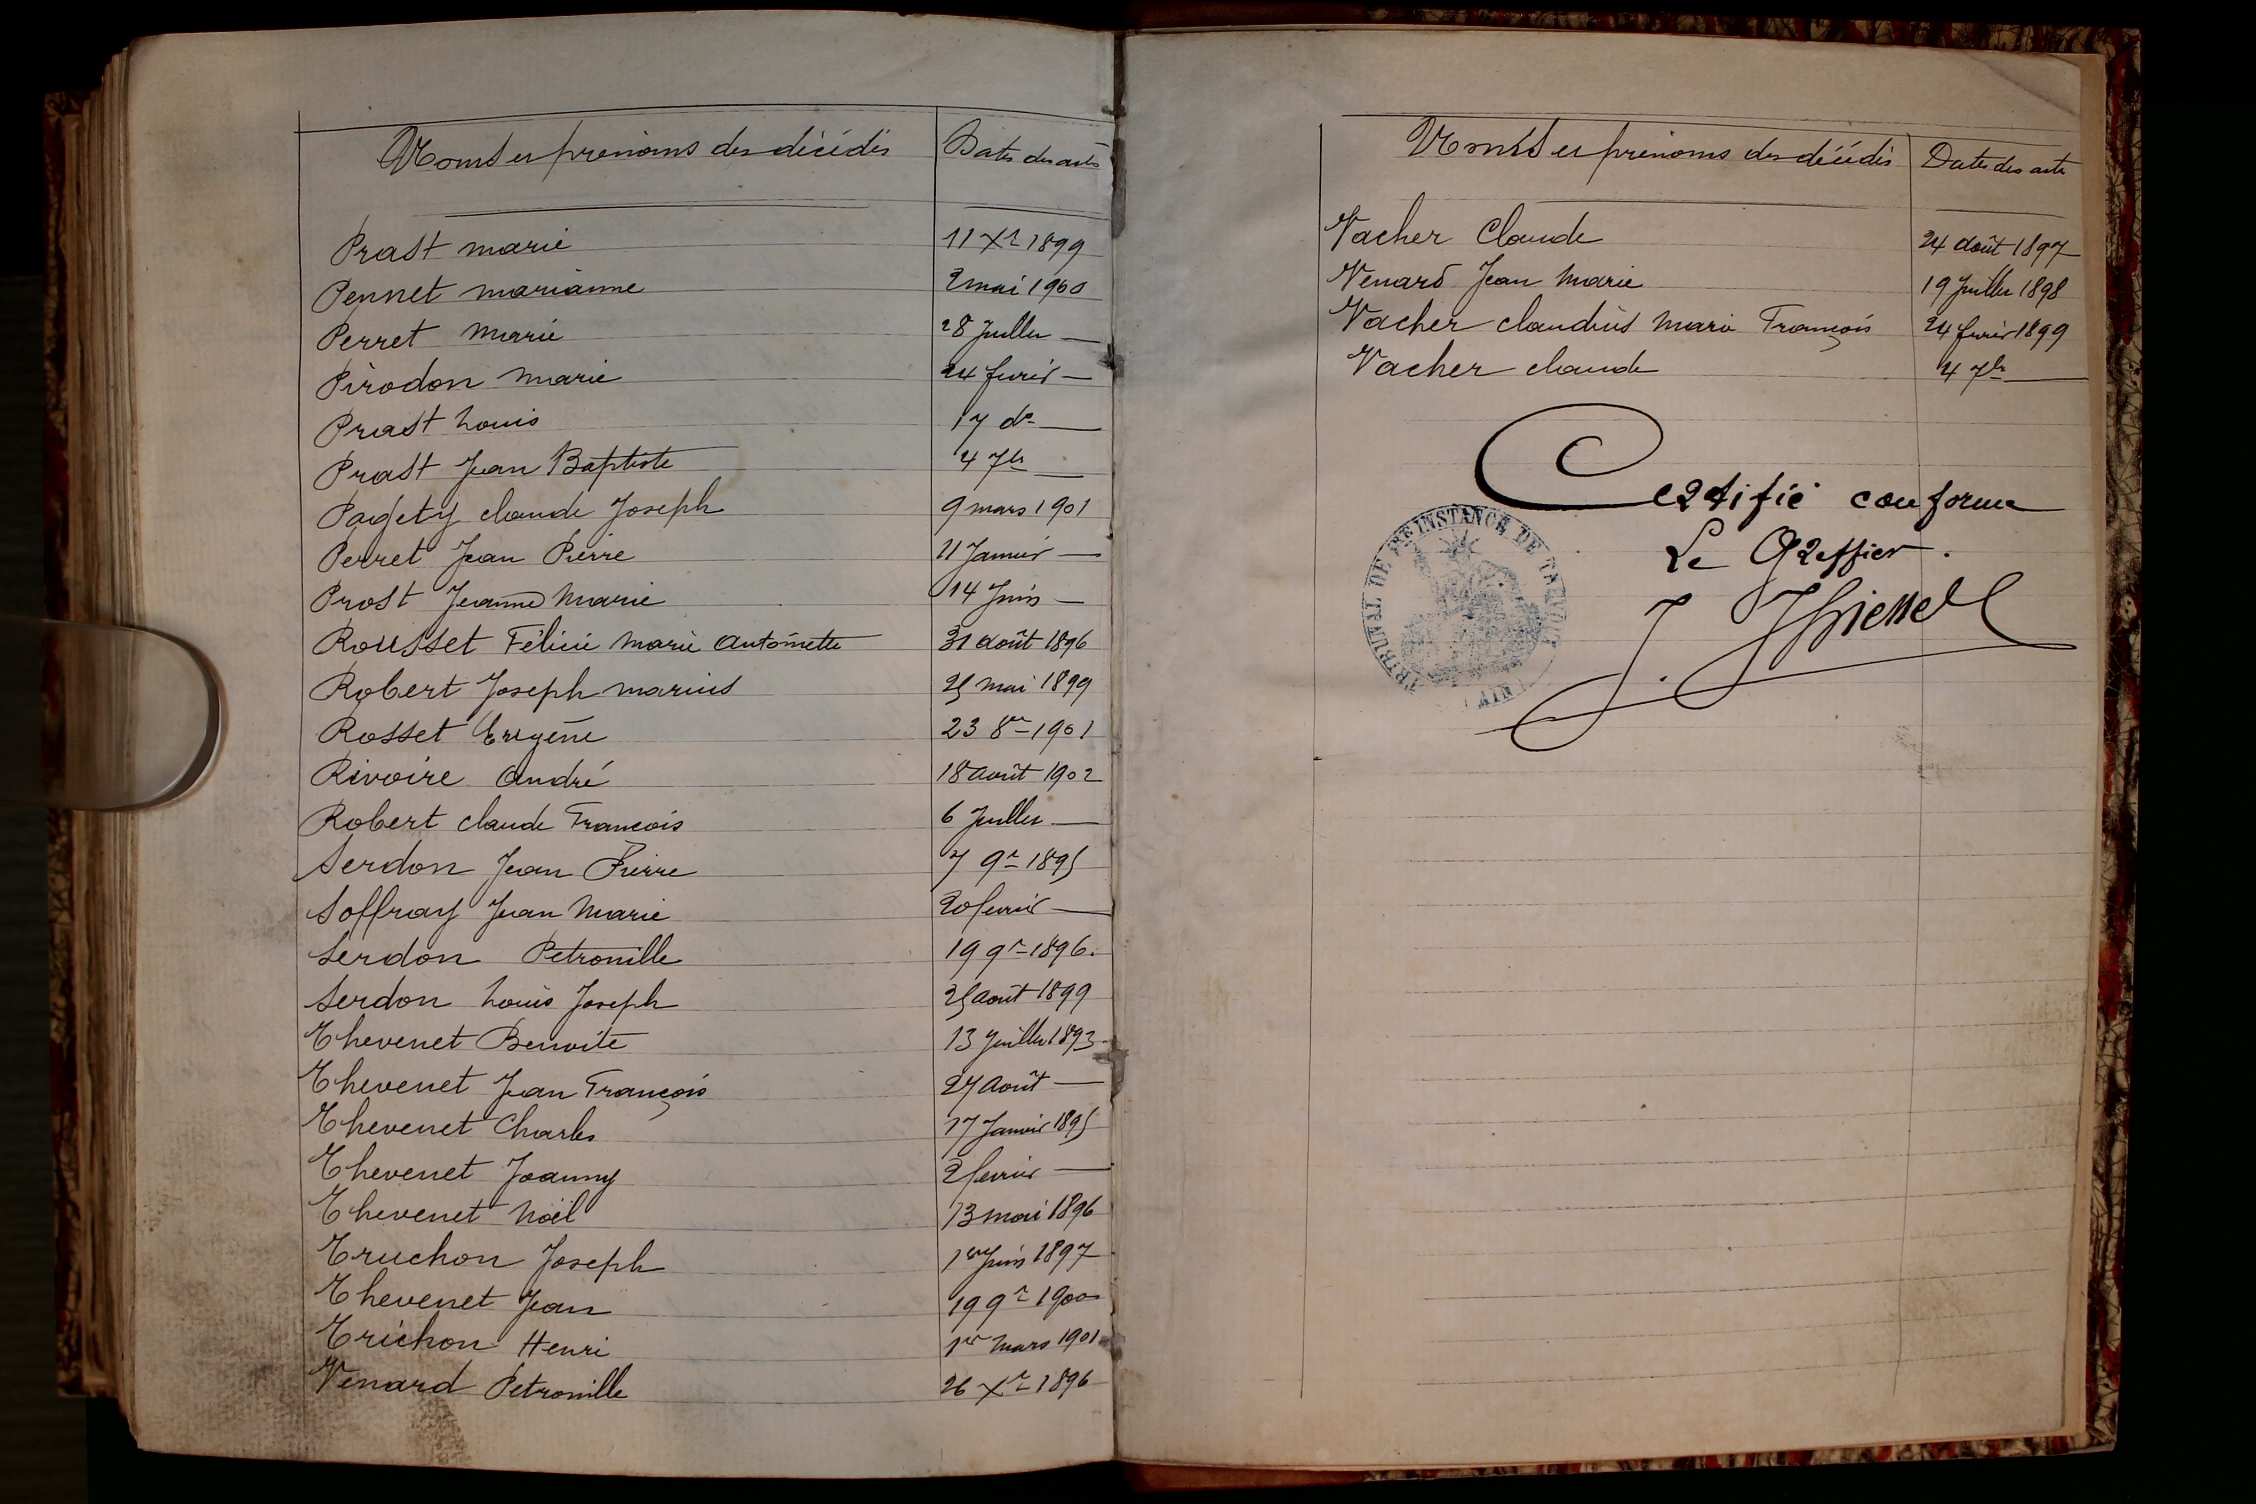 Noms et prénoms des décédés Dates des actes
Prast marie 11 Xr 1899
Pennet marianne 2 mai 1900
Perret Marie 28 Juillet —
Pirodon Marie 24 fevrier —
Prast Louis 17 do —
Prast Jean Baptiste 4 7bre —
Pagety claude Joseph 9 mars 1901
Perret Jean Pierre 21 Janvier —
Prost Jeanne Marie 14 Juin —
Rousset Félicie Marie Antoinette 31 août 1896
Robert Joseph marius 25 mai 1899
Rosset Eugène 23 8re 1901
Rivoire André 18 août 1902
Robert claude François 6 Juillet —
Serdon Jean Pierre 7 9r 1895
Soffray Jean Marie 20 fevrier —
Serdon Petronille 19 9r 1896.
Serdon Louis Joseph 25 août 1899
Thevenet Benoite 13 Juillet 1893
Thevenet Jean François 27 Août —
Thevenet Charles 17 Janvier 1895
Thevenet Joanny 2 fevrier —
Thevenet Noël 13 mai 1896
Truchon Joseph 1er Juin 1897
Thevenet Jean 19 9r 1900
Trichon Henri 1er Mars 1901
Venard Petronille 26 Xr 1896
Noms et prénoms des décédés Dates des actes
Vacher Claude 24 août 1897
Venard Jean Marie 19 Juillet 1898
Vacher claudius Marie François 24 fevrier 1899
Vacher claude 4 7bre —
Certifié conforme
Le Greffier.
TRIBUNAL DE 1ERE INSTANCE DE TRÉVOUX
(AIN)